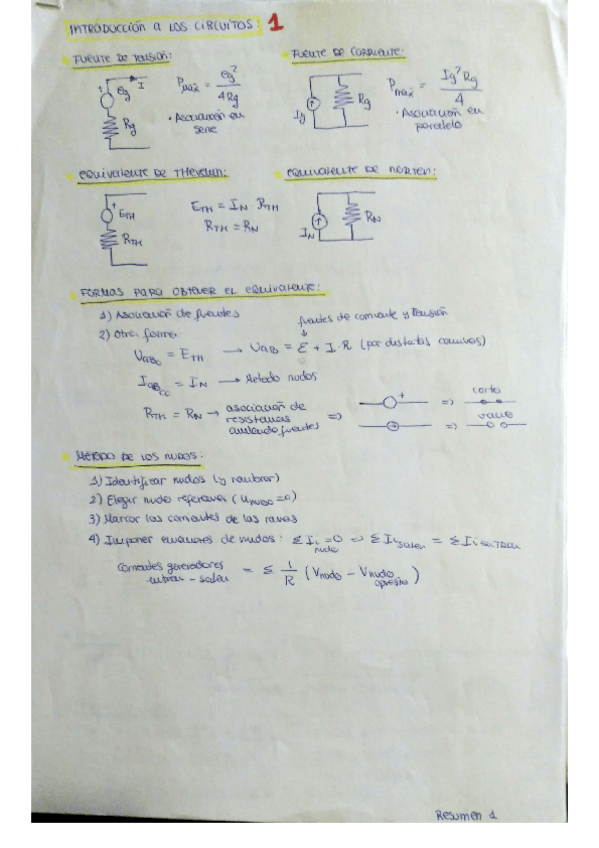 INTRODUCCIÓN A LOS CIRCUITOS: 1
FUENTE DE TENSIÓN:
+ eg I
Rg
Pmax = eg² / 4Rg
• Asociación en serie
FUENTE DE CORRIENTE:
Ig Rg
Pmax = Ig² Rg / 4
• Asociación en paralelo
EQUIVALENTE DE THEVENIN:
+ ETH
RTH
ETH = IN RTH
RTH = RN
EQUIVALENTE DE NORTON:
IN RN
FORMAS PARA OBTENER EL EQUIVALENTE:
1) Asociación de fuentes
2) Otra forma:
fuentes de corriente y tensión
UAB₀ = ETH → UAB = E + I·R (por distintos caminos)
IABcc = IN → Metodo nudos
RTH = RN → asociación de
resistencias
anulando fuentes
=>
+ => corto
=> vacío
MÉTODO DE LOS NUDOS:
1) Identificar nudos (y nombrar)
2) Elegir nudo referencia (Unudo=0)
3) Marcar las corrientes de las ramas
4) Imponer ecuaciones de nudos: Σ Ii = 0 => Σ Ii salen = Σ Ii entran
nudo
Corrientes generadores
entran - salen
= Σ 1/R (Vnudo - Vnudo opuesto)
Resumen 1